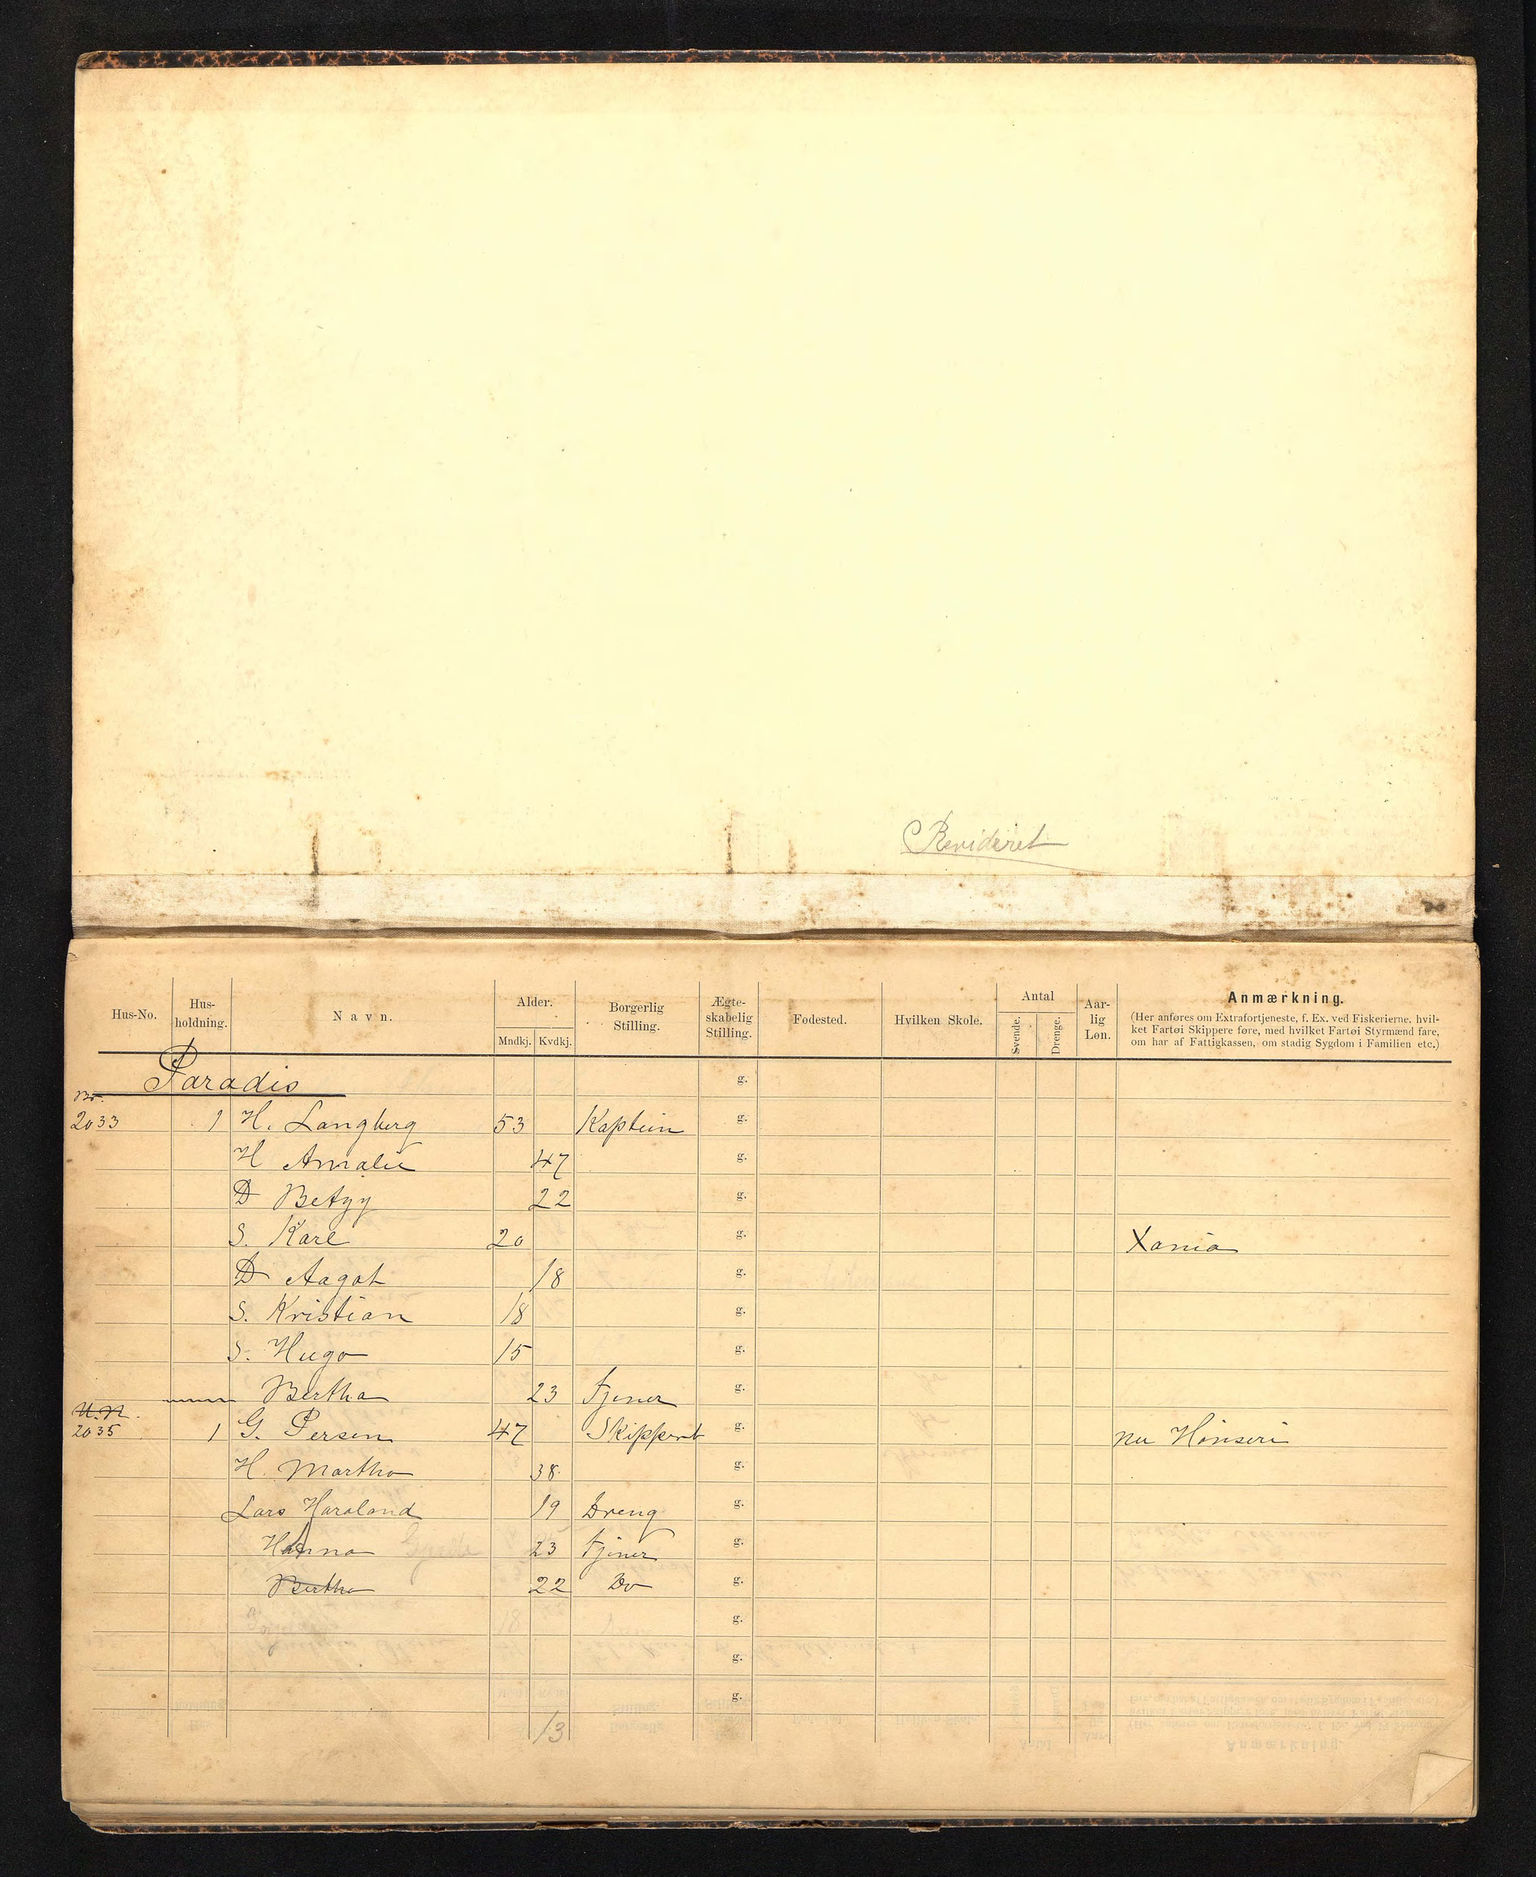 Revideret
Hus-No. Hus-holdning. Navn. Alder. Mndkj. Kvdkj. Borgerlig Stilling. Ægte-skabelig Stilling. Fødested. Hvilken Skole. Antal Svende. Drenge. Aar-lig Løn. Anmærkning.
(Her anføres om Extrafortjeneste, f. Ex. ved Fiskerierne, hvil-
ket Fartøi Skippere føre, med hvilket Fartøi Styrmænd fare,
om har af Fattigkassen, om stadig Sygdom i Familien etc.)
Paradis g.
Br.
2033 1 H. Langberg 53 Kaptein g.
H Amalie 47 g.
D Betzy 22 g.
S. Karl 20 g. Xania
D Aagot 18 g.
S. Kristian 18 g.
S. Hugo 15 g.
Bertha 23 Tjener g.
U.N.
2035 1 G. Persen 47 Skipper g. nu
H. Martha 38 g.
Lars Haraland 19 Dreng g.
Hanna 23 Tjener g.
Bertha 22 Do g.
g.
g.
g.
13